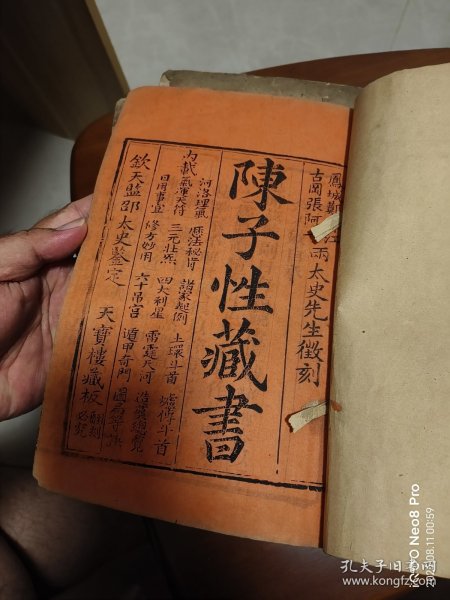 鳳城
古岡張阿
兩太史先生徵刻
陳子性藏書
內載
河洛理氣 曆法秘旨 諸家起例 上環斗首
氣運天符 三元壯馬 四大利星 雷霆大河
日用事宜 修方妙用 六十甲宮 遁甲奇門 造葬總覽
欽天監邵太史鑒定
天寶樓藏板
翻刻必究
OPPO Neo8 Pro
08.11 00:59
孔夫子旧书网
www.kongfz.com